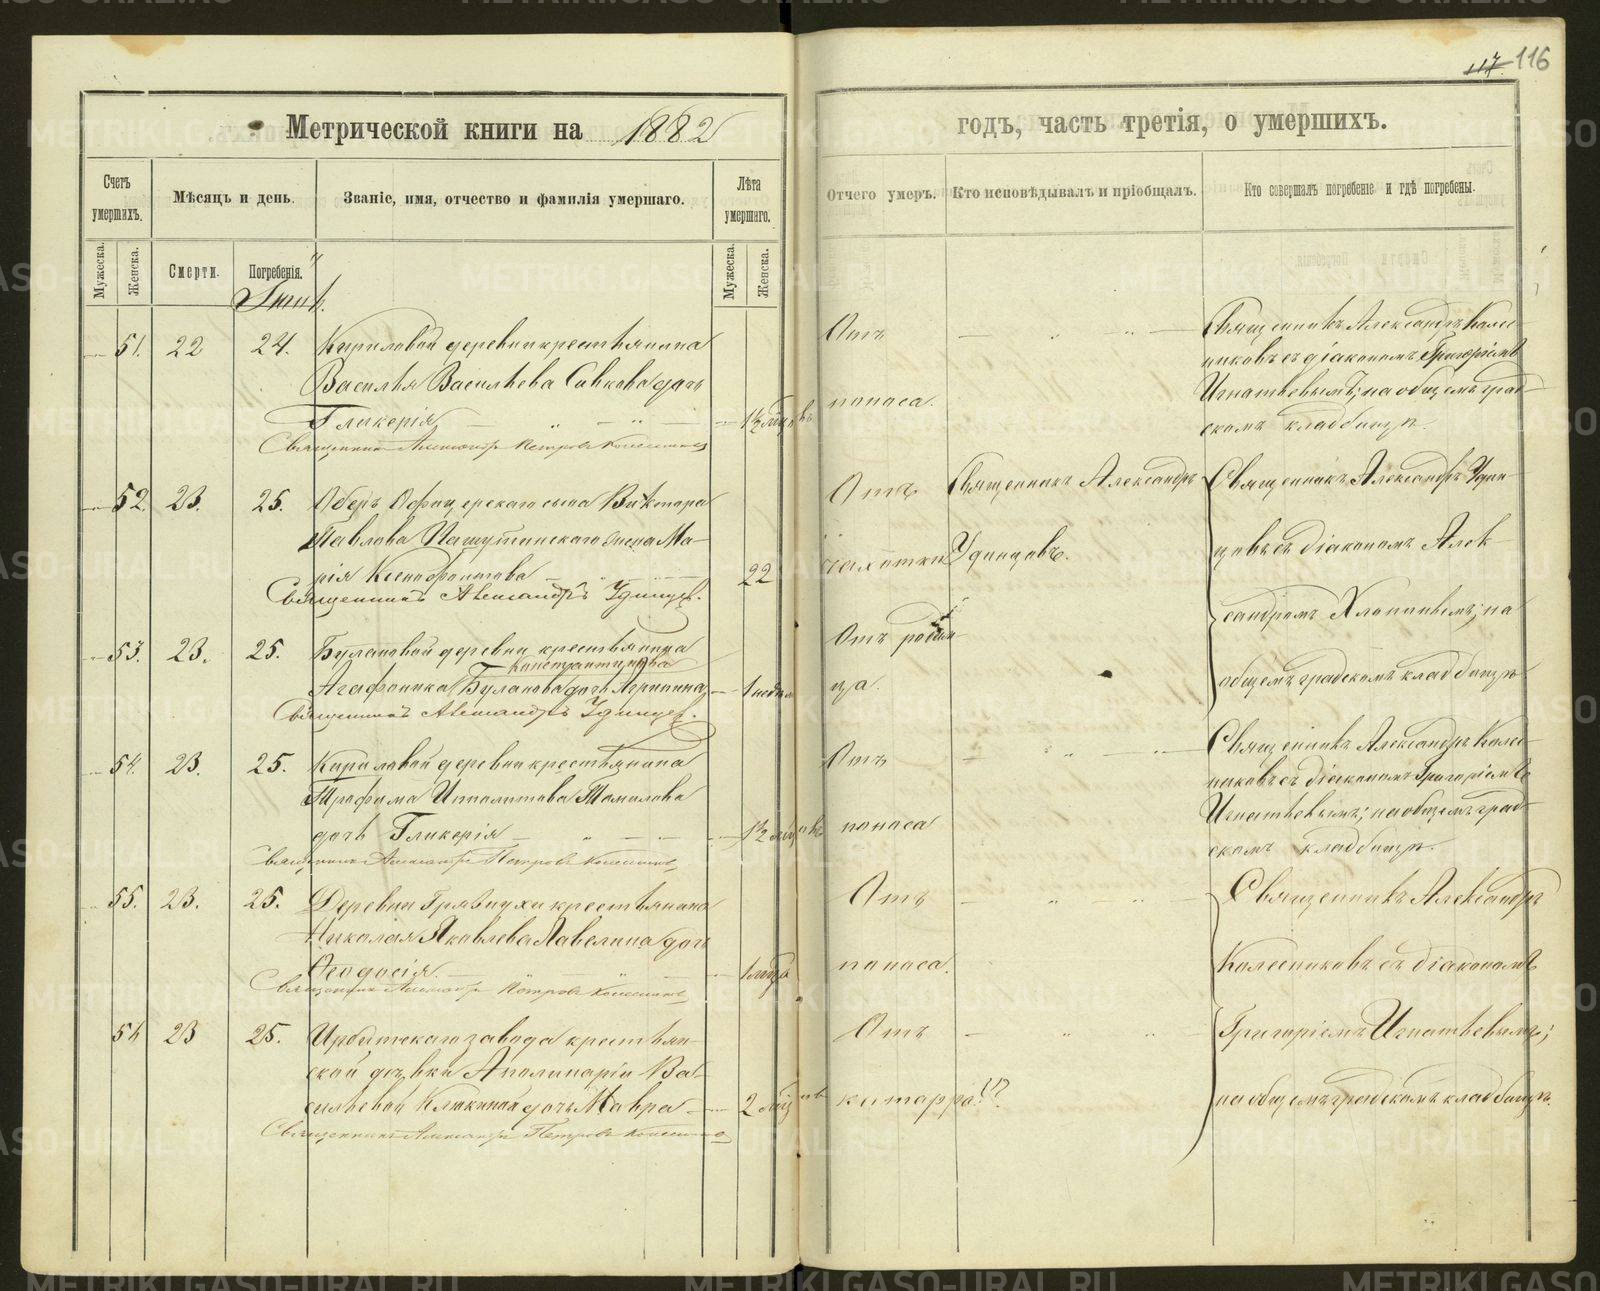 117. 116
Метрической книги на 1882
годъ, часть третія, о умершихъ.
Счетъ умершихъ.
Мѣсяцъ и день.
Званіе, имя, отчество и фамилія умершаго.
Лѣта умершаго.
Отчего умеръ.
Кто исповѣдывалъ и пріобщалъ.
Кто совершалъ погребеніе и гдѣ погребены.
Мужеска.
Женска.
Смерти.
Погребенія.
Мужеска.
Женска.
51. 22 24. Кириловой деревни крестьянина
Василья Васильева Савкова дочь
Гликерія
Священникъ Александръ Петровъ Колесниковъ
Отъ
поноса.
Священникъ Александръ Колес-
никовъ съ діакономъ Григоріемъ
Игнатьевымъ; на общемъ град-
скомъ кладбищѣ.
52. 23. 25. Оберъ Офицерскаго сына Виктора
Павлова жена Ма-
рія Ксенофонтова 22
Священникъ Александръ Удинцев.
Отъ
чахотки
Священникъ Александръ
Удинцовъ.
Священникъ Александръ Удин-
цовъ съ діакономъ Алек-
сандромъ Хлопинымъ; на
общемъ градскомъ кладбищѣ.
53. 23. 25. Булановой деревни крестьянина
Константинова
Агафоника Буланова дочь Агрипина 1 недѣл
Священникъ Александръ Удинцев.
Отъ родим
ца.
54. 23. 25. Кириловой деревни крестьянина
Трофима Ипполитова Томилова
дочь Гликерія
Священникъ Александръ Петровъ Колесников
Отъ
поноса
Священникъ Александръ Колес-
никовъ съ діакономъ Григоріемъ
Игнатьевымъ; на общемъ град-
скомъ кладбищѣ.
55. 23. 25. Деревни Грязнухи крестьянина
Николая Яковлева дочь
Ѳеодосія.
Священникъ Александръ Петровъ Колесников
Отъ
поноса.
Священникъ Александръ
Колесниковъ съ діакономъ
Григоріемъ Игнатьевымъ;
на общемъ градскомъ кладбищѣ.
23 25. Ирбитскаго завода крестьян-
ской дѣвки Аполинаріи Ва-
сильевой Клюкиной дочь Мавра
Священникъ Александръ Петровъ Колесников
Отъ
катарра.
METRIKI.GASO-URAL.RU